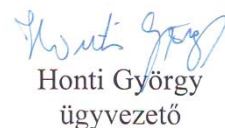 Honti György
Honti György
ügyvezető